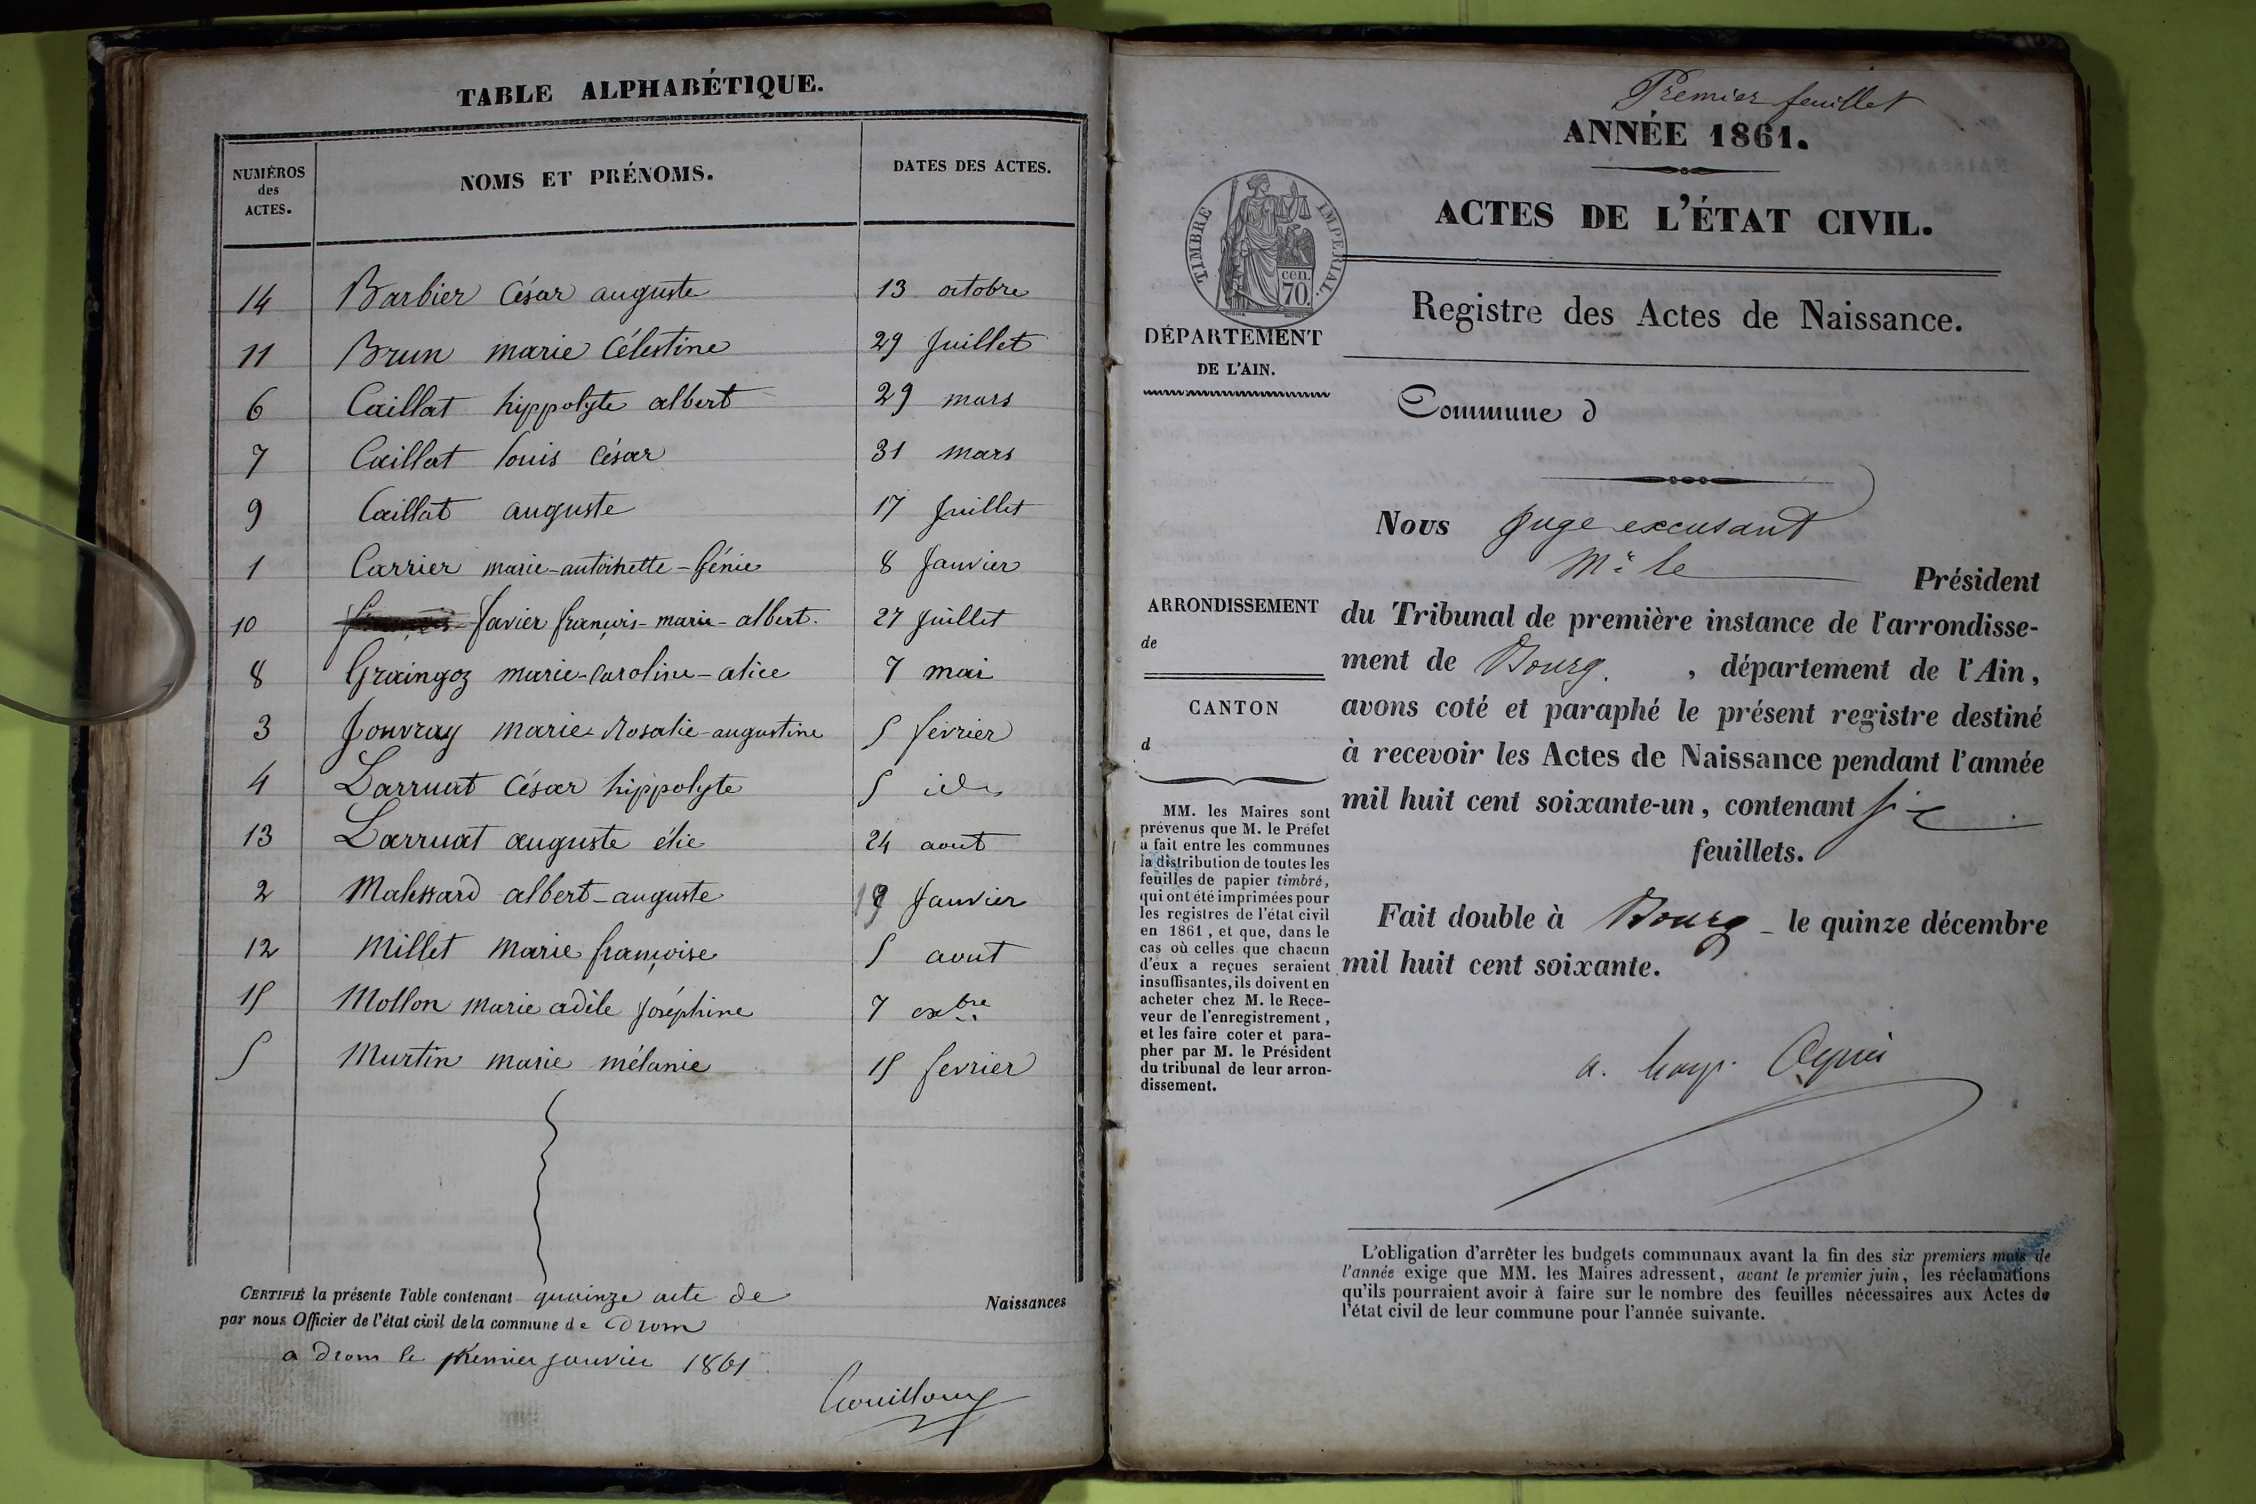 TABLE ALPHABÉTIQUE.
NUMÉROS
des
ACTES.
NOMS ET PRÉNOMS.
DATES DES ACTES.
14 Barbier César auguste 13 octobre
11 Brun marie Célestine 29 Juillet
6 Caillat hippolyte albert 29 mars
7 Caillat louis César 31 mars
9 Caillat auguste 17 Juillet
1 Carrier marie-antoinette-Génie 8 Janvier
10 favier françois-marie-albert. 27 Juillet
8 Graingoz marie-Caroline-alice 7 mai
3 Jouvray marie-Rosalie-augustine 5 février
4 Larruat César hippolyte 5 id
13 Larruat auguste élie 24 aout
2 albert-auguste 19 Janvier
12 Millet marie françoise 5 aout
15 Mollon marie adèle Joséphine 7 xbre
5 Murtin marie mélanie 15 fevrier
CERTIFIÉ la présente Table contenant quainze acte de Naissances
par nous Officier de l'état civil de la commune de Drom
a Drom le premier janvier 1861
Premier feuillet
ANNÉE 1861.
ACTES DE L'ÉTAT CIVIL.
TIMBRE IMPÉRIAL.
cen.
70.
Registre des Actes de Naissance.
DÉPARTEMENT
DE L'AIN.
Commune d
Nous Juge excusant
Mr le Président
du Tribunal de première instance de l'arrondisse-
ment de Bourg. , département de l'Ain,
avons coté et paraphé le présent registre destiné
à recevoir les Actes de Naissance pendant l'année
mil huit cent soixante-un, contenant six
feuillets.
Fait double à Bourg le quinze décembre
mil huit cent soixante.
ARRONDISSEMENT
de
CANTON
d
MM. les Maires sont
prévenus que M. le Préfet
a fait entre les communes
la distribution de toutes les
feuilles de papier timbré,
qui ont été imprimées pour
les registres de l'état civil
en 1861, et que, dans le
cas où celles que chacun
d'eux a reçues seraient
insuffisantes, ils doivent en
acheter chez M. le Rece-
veur de l'enregistrement,
et les faire coter et para-
pher par M. le Président
du tribunal de leur arron-
dissement.
L'obligation d'arrêter les budgets communaux avant la fin des six premiers mois de
l'année exige que MM. les Maires adressent, avant le premier juin, les réclamations
qu'ils pourraient avoir à faire sur le nombre des feuilles nécessaires aux Actes de
l'état civil de leur commune pour l'année suivante.